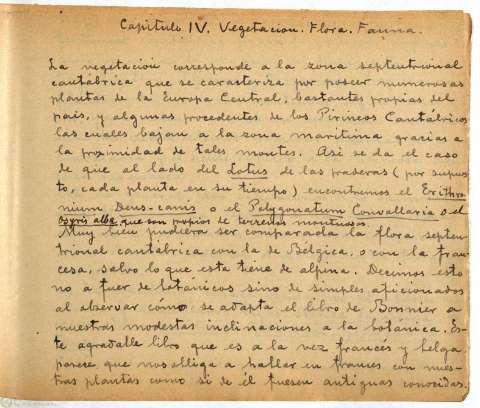 Capitulo IV. Vegetacion. Flora. Fauna.
La vegetación corresponde a la zona septentrional
cantábrica que se carasteriza por poseer numerosas
plantas de la Europa Central, bastantes propias del
pais, y algunas procedentes de los Pirineos Cantábricos
las cuales bajan a la zona maritima gracias a
la proximidad de tales montes. Asi se da el caso
de que al lado del Lotus de las praderas (por supues
to, cada planta en su tiempo) encontremos el Erithro
nium Deus-canis o el Polygonatum Convallaria o el
osyris alba que son propios de terrenos montuosos.
Muy bien pudiera ser comparada la flora septen
trional cantábrica con la de Bélgica, o con la fran
cesa, salvo lo que esta tiene de alpina. Decimos esto
no a fuer de botánicos sino de simples aficionados
al observar cómo se adapta el libro de Bonnier a
nuestras modestas inclinaciones a la botánica. Es-
te agradable libro que es a la vez francés y belga
parese que nos obliga a hablar en frances con nues-
tras plantas como si de él fuesen antiguas conocidas.